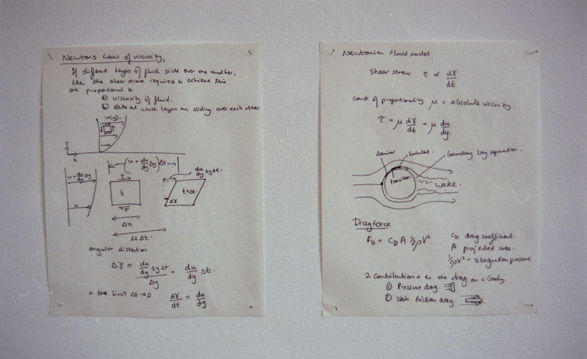 Newtons Law of viscosity.
If different layers of fluid slide over one another,
the shear stress required to achieve this
are proportional to
① Viscosity of fluid.
② Rate at which layers are sliding over each other.
u(y)
(u + du/dy Δy) Δt
u + du/dy Δy
du/dy Δy Δt.
u
t
t+Δt
Δγ
Δx
u Δt.
angular distortion
Δγ = du/dy Δy Δt / Δy = du/dy Δt.
In the limit Δt→0 dγ/dt = du/dy
Newtonian fluid model
Shear stress τ ∝ dγ/dt
const of proportionality μ = absolute viscosity.
τ = μ dγ/dt = μ du/dy.
Laminar turbulent. boundary lay separation.
transition
Wake.
Drag force
F_D = C_D A ½ρV²
C_D drag coefficient.
A projected area.
½ρV² = stagnation pressure
2 Contributions to the drag on a body
① Pressure drag.
② Skin friction drag.